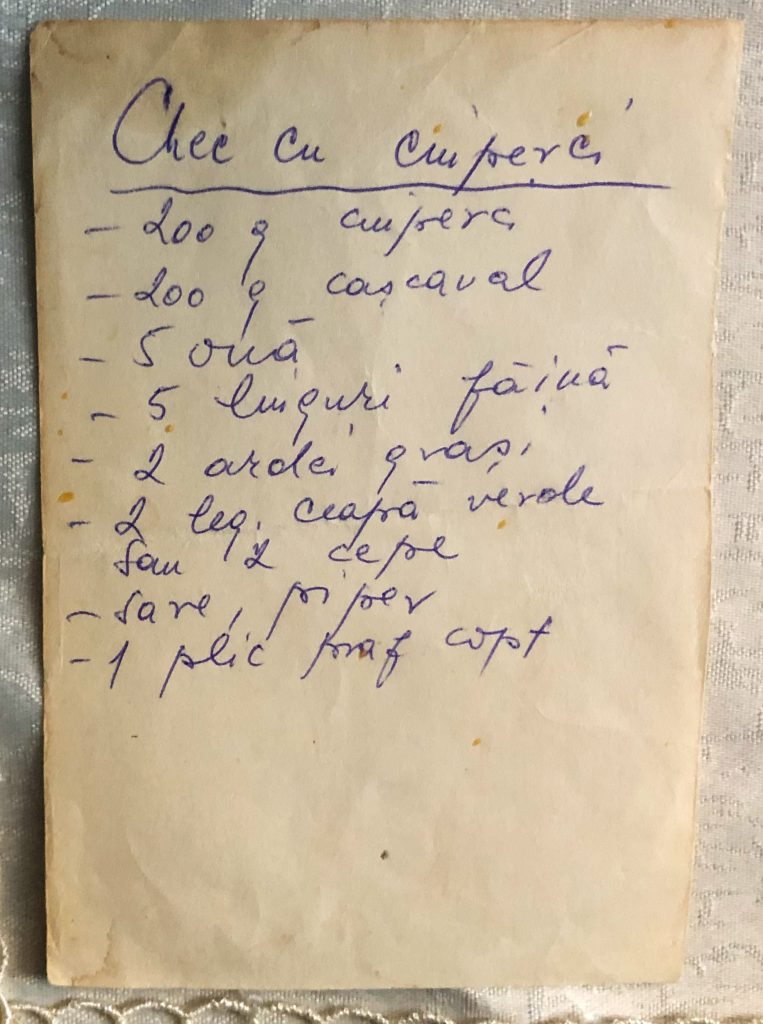 Chec cu ciuperci
- 200 g ciuperci
- 200 g cașcaval
- 5 ouă
- 5 linguri făină
- 2 ardei grași
- 2 leg. ceapă verde
sau 2 cepe
- sare, piper
- 1 plic praf copt